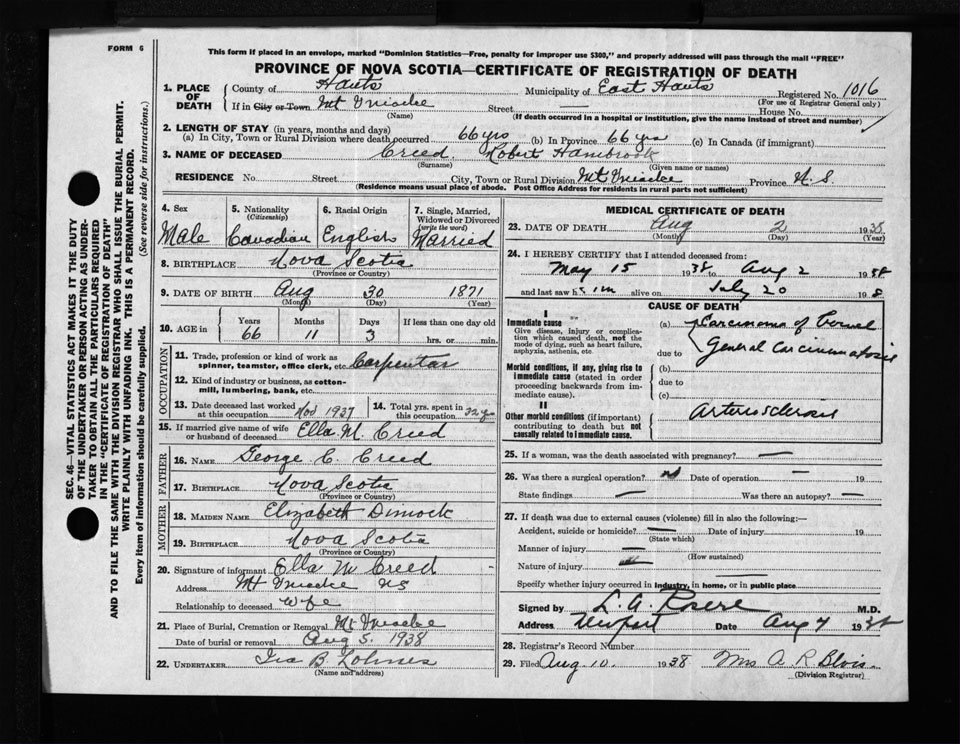 FORM 6
This form if placed in an envelope, marked "Dominion Statistics—Free, penalty for improper use $300," and properly addressed will pass through the mail "FREE"
PROVINCE OF NOVA SCOTIA—CERTIFICATE OF REGISTRATION OF DEATH
1. PLACE OF DEATH
County of Hants Municipality of East Hants Registered No. 1016
(For use of Registrar General only)
If in City or Town Mt Uniacke Street — House No.
(Name) (If death occurred in a hospital or institution, give the name instead of street and number)
2. LENGTH OF STAY (in years, months and days)
(a) In City, Town or Rural Division where death occurred 66 yrs (b) In Province 66 yrs (c) In Canada (if immigrant)
3. NAME OF DECEASED Creed Robert Hambrook
(Surname) (Given name or names)
RESIDENCE No. Street City, Town or Rural Division Mt Uniacke Province N.S.
(Residence means usual place of abode. Post Office Address for residents in rural parts not sufficient)
4. Sex Male
5. Nationality (Citizenship) Canadian
6. Racial Origin English
7. Single, Married, Widowed or Divorced (write the word) Married
8. BIRTHPLACE Nova Scotia
(Province or Country)
9. DATE OF BIRTH Aug 30 1871
(Month) (Day) (Year)
10. AGE in Years Months Days If less than one day
66 11 3 hrs. or min.
OCCUPATION
11. Trade, profession or kind of work as spinner, teamster, office clerk, etc. Carpenter
12. Kind of industry or business, as cotton-mill, lumbering, bank, etc.
13. Date deceased last worked at this occupation Nov 1937
14. Total yrs. spent in this occupation 32 yrs
15. If married give name of wife or husband of deceased Ella M. Creed
FATHER
16. NAME George C. Creed
17. BIRTHPLACE Nova Scotia
(Province or Country)
MOTHER
18. MAIDEN NAME Elizabeth Dimock
19. BIRTHPLACE Nova Scotia
(Province or Country)
20. Signature of informant Ella M Creed
Address Mt Uniacke NS
Relationship to deceased wife
21. Place of Burial, Cremation or Removal Mt Uniacke
Date of burial or removal Aug 5. 1938
22. UNDERTAKER Ira B.
(Name and address)
MEDICAL CERTIFICATE OF DEATH
23. DATE OF DEATH Aug 2 1938
(Month) (Day) (Year)
24. I HEREBY CERTIFY that I attended deceased from:
May 15 1938 to Aug 2 1938
and last saw him alive on July 20 1938
CAUSE OF DEATH
I
Immediate cause
Give disease, injury or complication which caused death, not the mode of dying, such as heart failure, asphyxia, asthenia, etc.
(a) Carcinoma of bowel
due to General Carcinomatosis
Morbid conditions, if any, giving rise to immediate cause (stated in order proceeding backwards from immediate cause).
(b)
due to
(c)
II
Other morbid conditions (if important) contributing to death but not causally related to immediate cause.
Arteriosclerosis
25. If a woman, was the death associated with pregnancy? —
26. Was there a surgical operation? no Date of operation — 19
State findings — Was there an autopsy? —
27. If death was due to external causes (violence) fill in also the following:—
Accident, suicide or homicide? — Date of injury 19
(State which)
Manner of injury —
(How sustained)
Nature of injury —
Specify whether injury occurred in industry, in home, or in public place
Signed by L. A. M.D.
Address Newport Date Aug 4 1938
28. Registrar's Record Number
29. Filed Aug 10. 1938 Mrs A R Blois
(Division Registrar)
SEC. 46—VITAL STATISTICS ACT MAKES IT THE DUTY
OF THE UNDERTAKER OR PERSON ACTING AS UNDER-
TAKER TO OBTAIN ALL THE PARTICULARS REQUIRED
IN THE "CERTIFICATE OF REGISTRATION OF DEATH"
AND TO FILE THE SAME WITH THE DIVISION REGISTRAR WHO SHALL ISSUE THE BURIAL PERMIT.
WRITE PLAINLY WITH UNFADING INK. THIS IS A PERMANENT RECORD.
Every item of information should be carefully supplied. (See reverse side for instructions.)